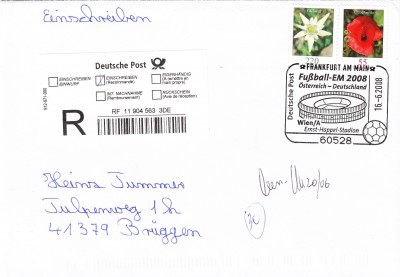 Einschreiben
Deutsche Post
EINSCHREIBEN EINWURF
EINSCHREIBEN (Recommandé)
EIGENHÄNDIG (A remettre en main propre)
INT. NACHNAHME (Remboursement)
RÜCKSCHEIN (Avis de réception)
R
RF 11 904 563 3DE
220
55
FRANKFURT AM MAIN
Deutsche Post
Fußball-EM 2008
Österreich – Deutschland
Wien/A
Ernst-Happel-Stadion
60528
16.6.2008
Heins Tummes
Tulpenweg 1 h
41379 Brüggen
20/06